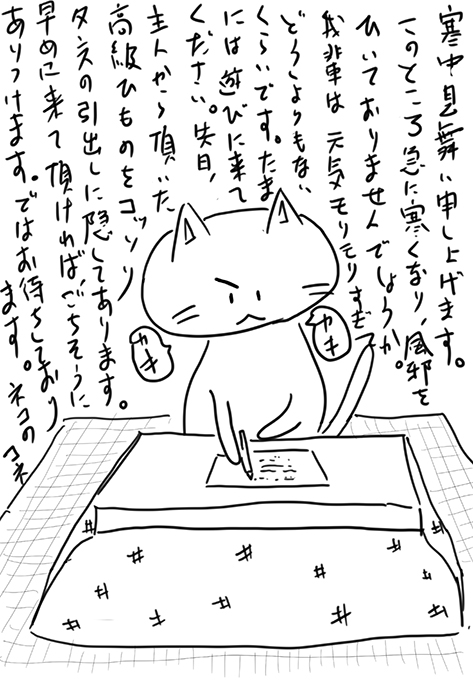 寒中見舞い申し上げます。
このところ急に寒くなり、風邪を
ひいておりませんでしょうか。
我輩は元気モリモリすぎて
どうしようもない
くらいです。たま
には遊びに来て
ください。先日、
主人から頂いた
高級ひものをコッソリ
タンスの引出しに隠してあります。
早めに来て頂ければ、ごちそうに
ありつけます。ではお待ちしており
ます。ネコのコネ
カキ
カキ